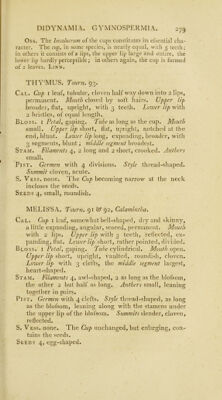 DIDYNAMIA. GYMNOSPERMIA. 279
Obs. The Involucrum of the cups constitutes its essential cha-
racter. The cup, in some species, is nearly equal, with 5 teeth;
in others it consists of 2 lips, the upper lip large and entire, the
lower lip hardly perceptible; in others again, the cup is formed
of 2 leaves. Linn.
THY'MUS. Tourn. 93.
Cal. Cup 1 leaf, tubular, cloven half way down into 2 lips,
permanent. Mouth closed by soft hairs. Upper lip
broader, flat, upright, with 3 teeth. Lower lip with
2 bristles, of equal length.
Bloss. 1 Petal, gaping. Tube as long as the cup. Mouth
small. Upper lip short, flat, upright, notched at the
end, blunt. Lower lip long, expanding, broader, with
3 segments, blunt; middle segment broadest.
Stam. Filaments 4, 2 long and 2 short, crooked. Anthers
small.
Pist. Germen with 4 divisions. Style thread-shaped.
Summit cloven, acute.
S. Vess. none. The Cup becoming narrow at the neck
incloses the seeds.
Seeds 4, small, roundish.
MELIS'SA. Tourn. 91 & 92, Calamintha.
Cal. Cup 1 leaf, somewhat bell-shaped, dry and skinny,
a little expanding, angular, scored, permanent. Mouth
with 2 lips. Upper lip with 3 teeth, reflected, ex-
panding, flat. Lower lip short, rather pointed, divided.
Bloss. 1 Petal, gaping. Tube cylindrical. Mouth open.
Upper lip short, upright, vaulted, roundish, cloven.
Lower lip with 3 clefts, the middle segment largest,
heart-shaped.
Stam. Filaments 4, awl-shaped, 2 as long as the blossom,
the other 2 but half as long. Anthers small, leaning
together in pairs.
Pist. Germen with 4 clefts. Style thread-shaped, as long
as the blossom, leaning along with the stamens under
the upper lip of the blossom. Summits slender, cloven,
reflected.
S. Vess. none. The Cup unchanged, but enlarging, con-
tains the seeds.
Seeds 4, egg-shaped.